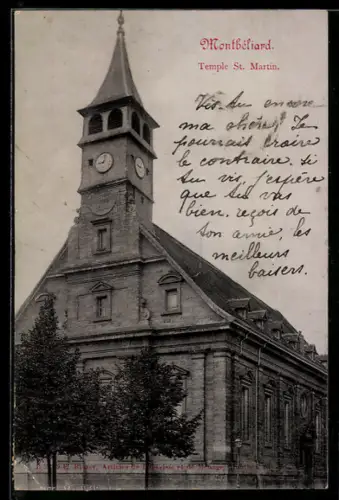 Montbéliard.
Temple St. Martin.
Vis-tu encore
ma chère? Je
pourrait craire
le contraire. Si
tu vis, j'espère
que tu vas
bien. reçois de
ton amie, les
meilleurs
baisers.